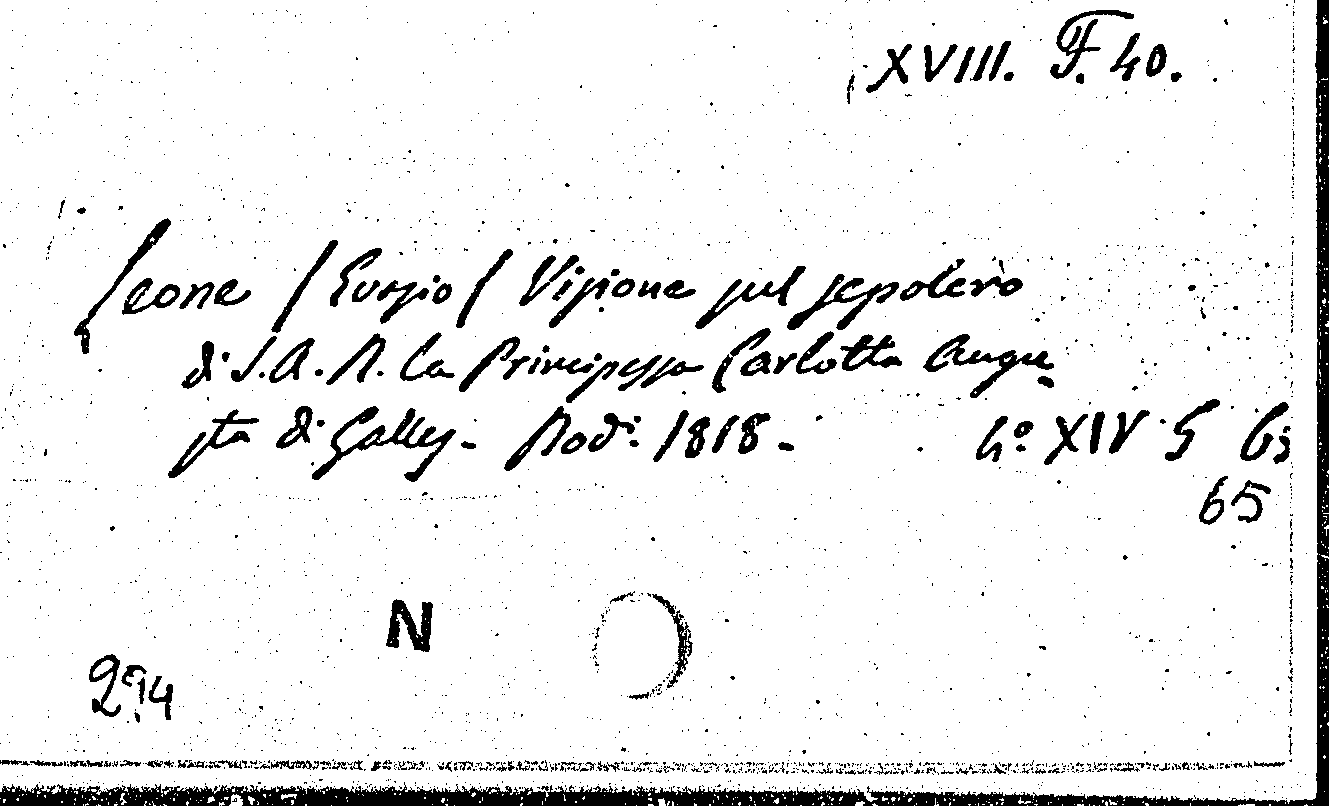 XVIII. F. 40.
Leone / Evasio / Visione sul sepolcro
di S. A. R. la Principessa Carlotta Augu-
sta di Galles - Mod.i 1818 -
4.o XIV G
65
N